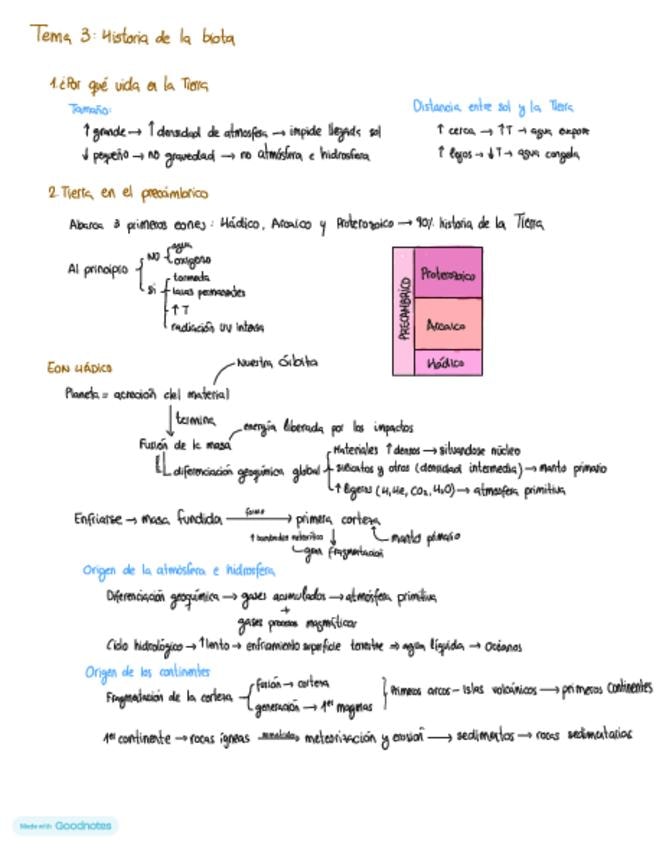 Tema 3: Historia de la biota
1. ¿Por qué vida en la Tierra
Tamaño:
↑ grande → ↑ densidad de atmosfera → impide llegada sol
↓ pequeño → no gravedad → no atmósfera e hidrosfera
Distancia entre sol y la Tierra
↑ cerca → ↑T → agua evapore
↑ lejos → ↓T → agua congela
2. Tierra en el precámbrico
Abarca 3 primeros eones: Hádico, Arcaico y Proterozoico → 90% historia de la Tierra
Al principio
NO
agua
oxígeno
Si
tormenta
lavas permanentes
↑ T
radiación UV intensa
PRECÁMBRICO
Proterozoico
Arcaico
Hádico
EON HÁDICO
Nuestra órbita
Planeta = acreción del material
termina
energía liberada por los impactos
Fusión de la masa
diferenciación geoquímica global
Materiales ↑ densos → situandose núcleo
silicatos y otros (densidad intermedia) → manto primario
↑ ligeros (H, He, CO₂, H₂O) → atmosfera primitiva
Enfriarse → masa fundida forma → primera corteza
↑ bombardeo meteorítico ↓
manto primario
gran fragmentación
Origen de la atmósfera e hidrosfera
Diferenciación geoquímica → gases acumulados → atmósfera primitiva
+
gases procesos magmáticos
Ciclo hidrológico → ↑ lento → enfriamiento superficie terrestre → agua líquida → Océanos
Origen de los continentes
Fragmentación de la corteza
fusión → corteza
generación → 1ᵉʳ magmas
Primeros arcos-islas volcánicos → primeros continentes
1ᵉʳ continente → rocas ígneas → meteorización y erosión → sedimentos → rocas sedimentarias
Made with Goodnotes